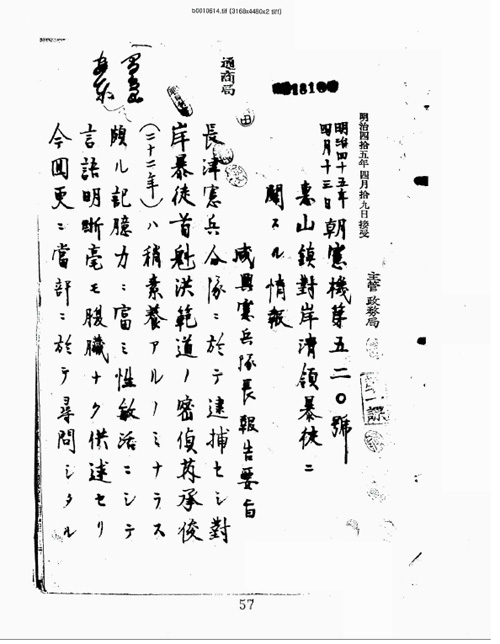 b0010614.tif (3168x4480x2 tiff)
明治四拾五年四月拾九日接受
主管 政務局
第一課
通商局
18100
明治四十五年
四月十三日 朝憲機第五二〇號
惠山鎮對岸清領暴徒ニ
関スル情報
咸興憲兵隊長報告要旨
長津憲兵分隊ニ於テ逮捕セシ對
岸暴徒首魁洪範道ノ密偵苒承俊
(二十二年)ハ稍素養アルノミナラス
頗ル記臆力ニ富ミ性敏活ニシテ
言語明晰毫モ腹臓ナク供述セリ
今回更ニ當部ニ於テ尋問シタル
57